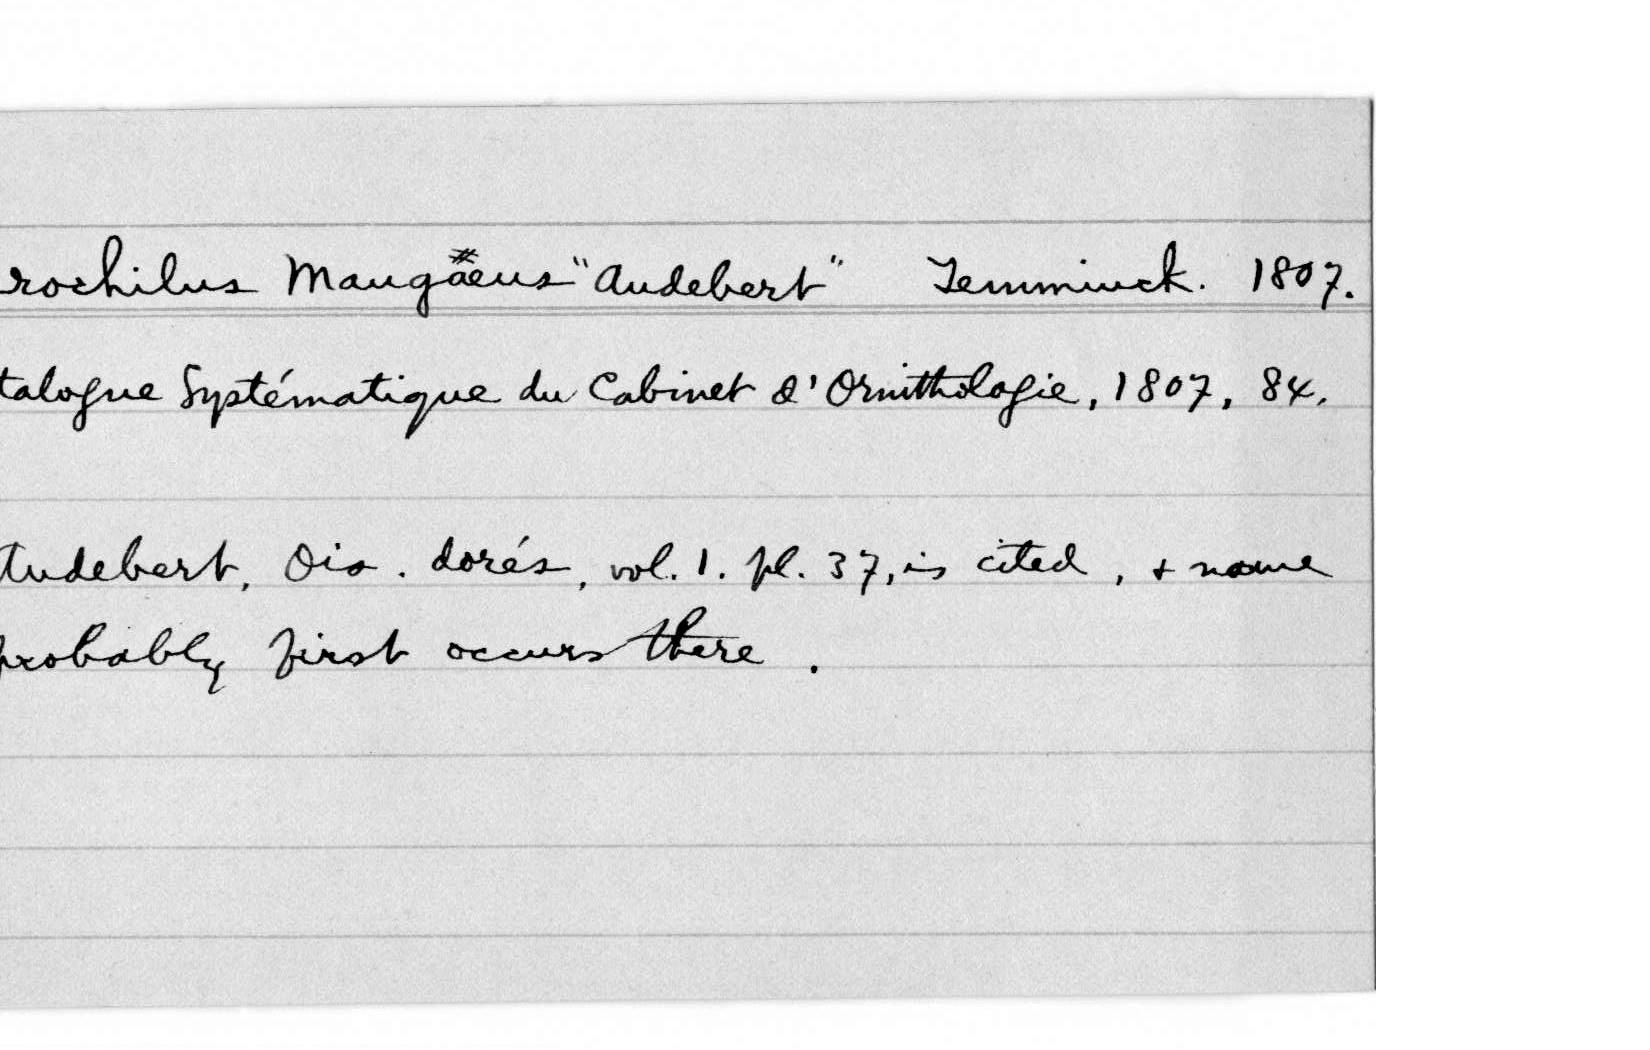 rochilus Maugäeus "Audebert" Temminck. 1807.
talogue Systématique du Cabinet d'Ornithologie, 1807, 84.
Audebert, Ois. dorés, vol. 1. pl. 37, is cited, + name
probably first occurs there.